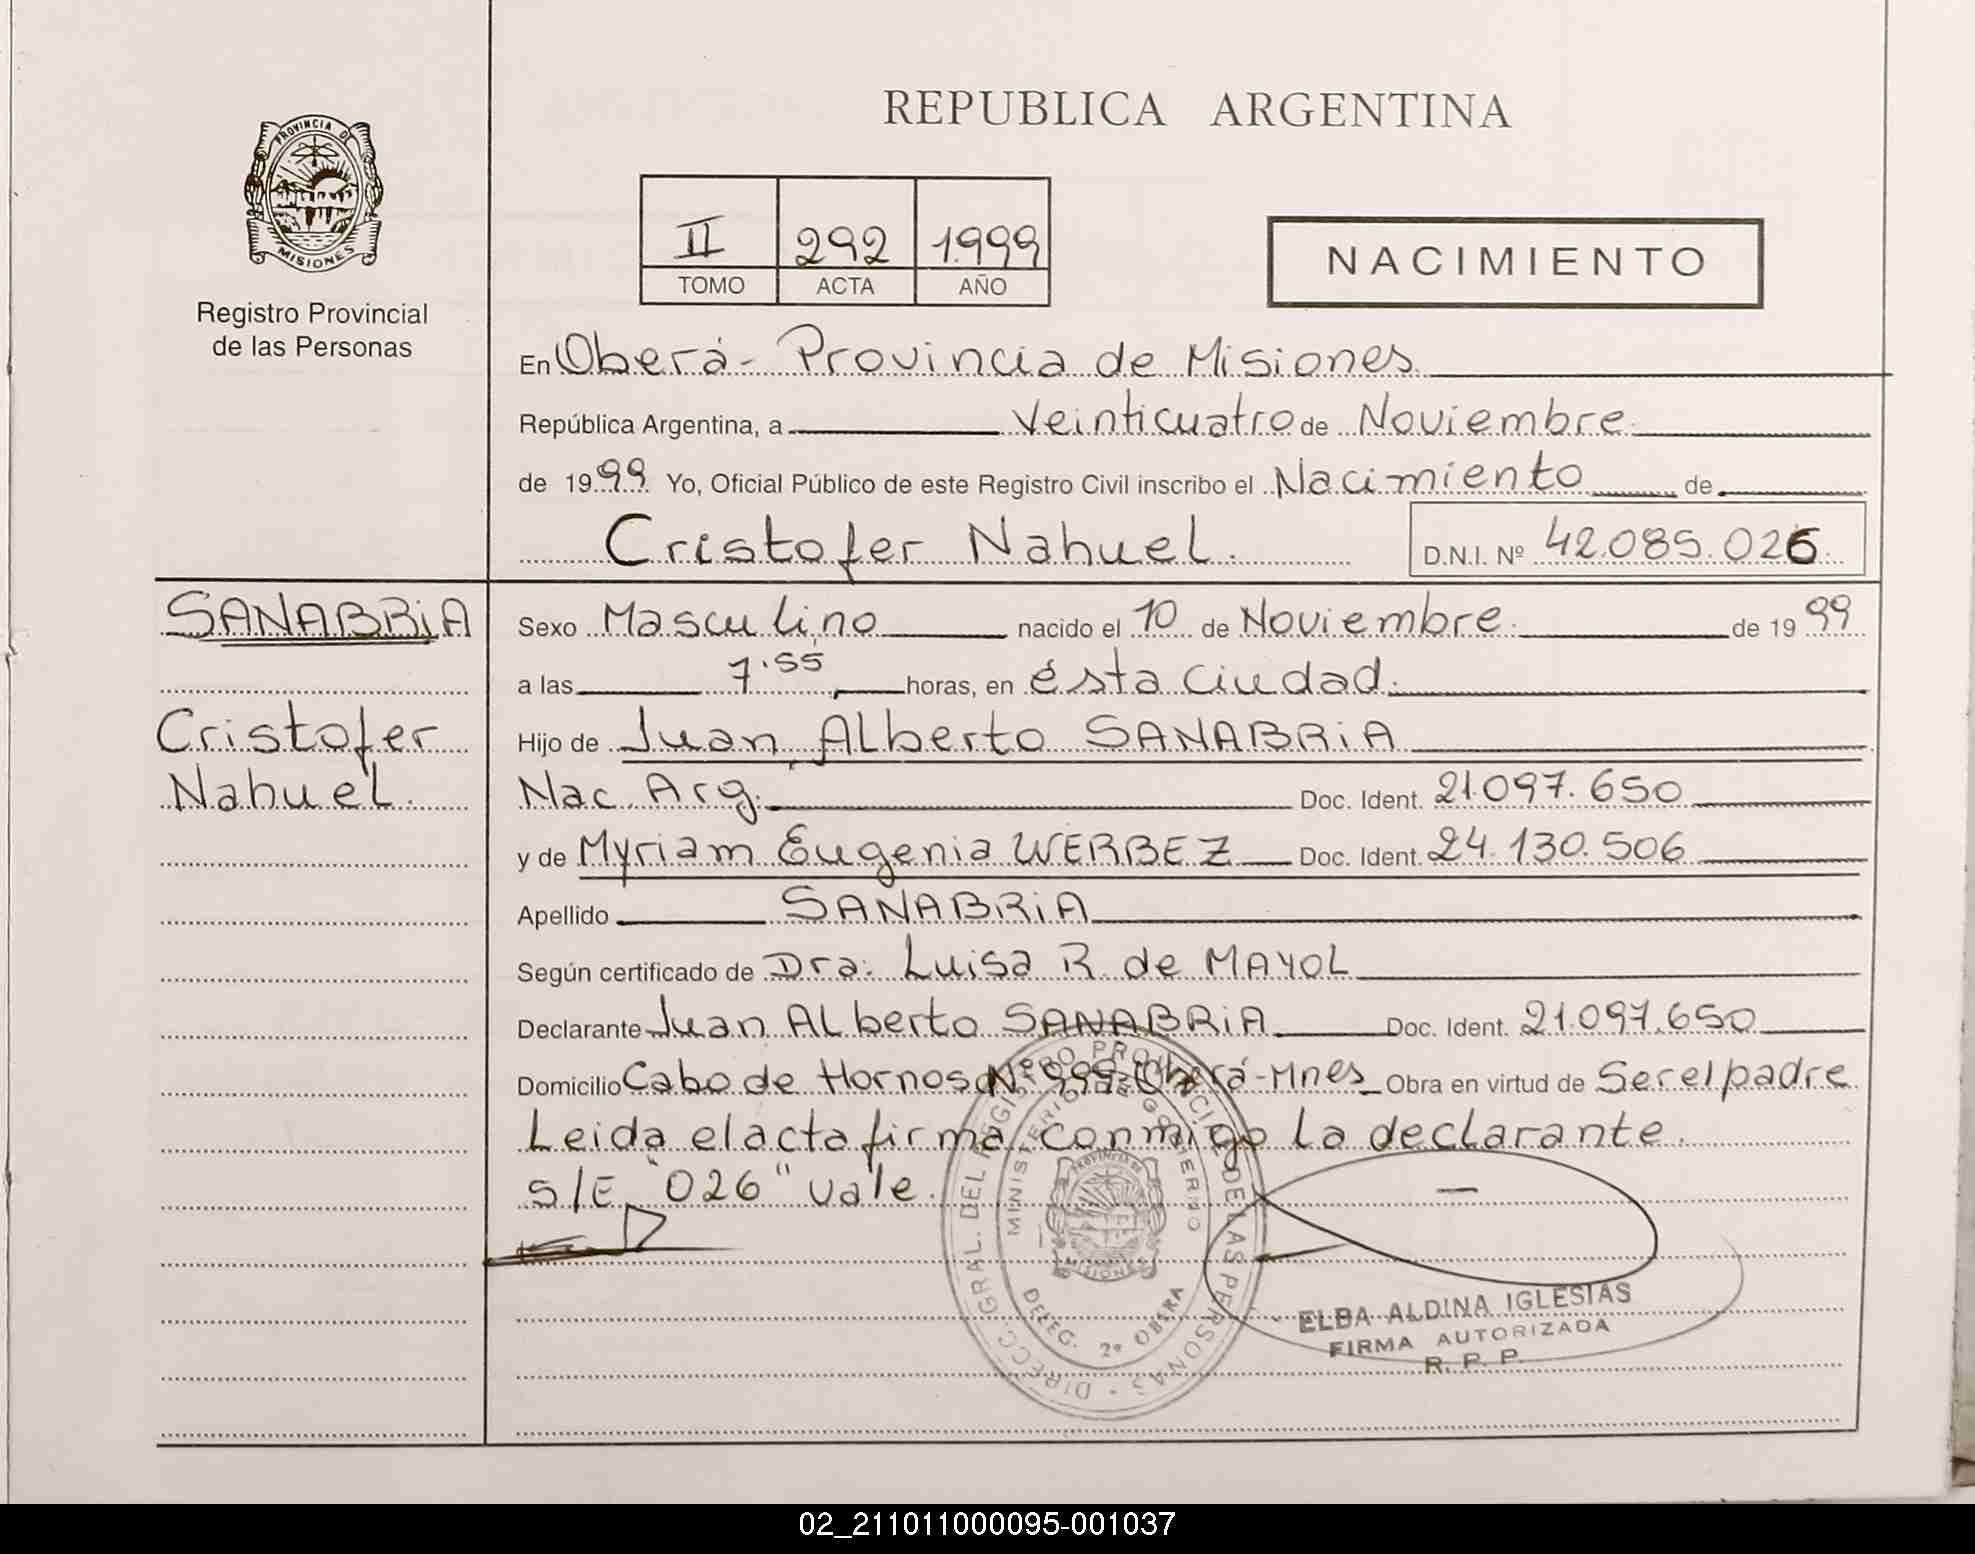 REPUBLICA ARGENTINA
PROVINCIA DE
MISIONES
Registro Provincial
de las Personas
II 292 1.999
TOMO ACTA AÑO
NACIMIENTO
En Oberá - Provincia de Misiones
República Argentina, a Veinticuatro de Noviembre
de 1999 Yo, Oficial Público de este Registro Civil inscribo el Nacimiento de
Cristofer Nahuel. D.N.I. Nº 42.085.026
SANABRiA
Cristofer
Nahuel.
Sexo Masculino nacido el 10 de Noviembre de 1999
a las 7.55 horas, en ésta Ciudad.
Hijo de Juan Alberto SANABRiA
Nac. Arg. Doc. Ident. 21.097.650
y de Myriam Eugenia WERBEZ Doc. Ident. 24.130.506
Apellido SANABRiA
Según certificado de Dra. Luisa R. de MAYOL
Declarante Juan ALberto SANABRiA Doc. Ident. 21.097.650
Domicilio Cabo de Hornos Nº 999 Oberá-Mnes Obra en virtud de Ser el padre
Leida el acta firma conmigo La declarante.
S/E "026" vale.
DIRECC. GRAL. DEL REGISTRO PROVINCIAL DE LAS PERSONAS
MINISTERIO DE GOBIERNO
PROVINCIA DE
MISIONES
DELEG. 2ª OBERA
ELBA ALDINA IGLESIAS
FIRMA AUTORIZADA
R. P. P.
02_211011000095-001037